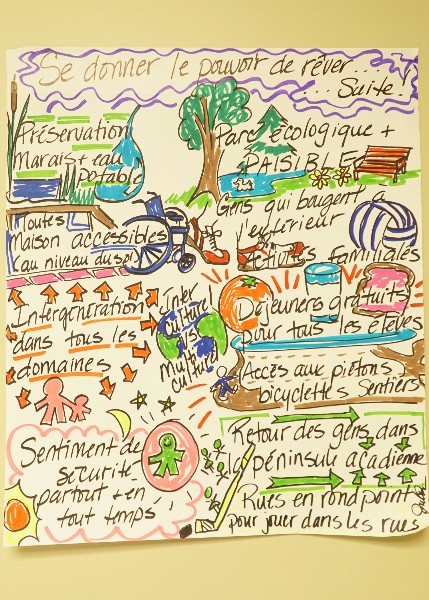 Se donner le pouvoir de rêver...
...Suite!
Préservation
Marais + eau
potable
Parc écologique +
PAISIBLE
Gens qui bougent à
l'extérieur
Activités familiales
Toutes
Maison accessibles
(au niveau du sol)
Intergénération
dans tous les
domaines
inter
culture
vs
multi
culture!
Déjeuners gratuits
pour tous les élèves
Accès aux piétons
bicyclettes Sentiers
Sentiment de
sécurité
partout + en
tout temps
Retour des gens dans
la péninsule acadienne
Rues en rond point
pour jouer dans les rues